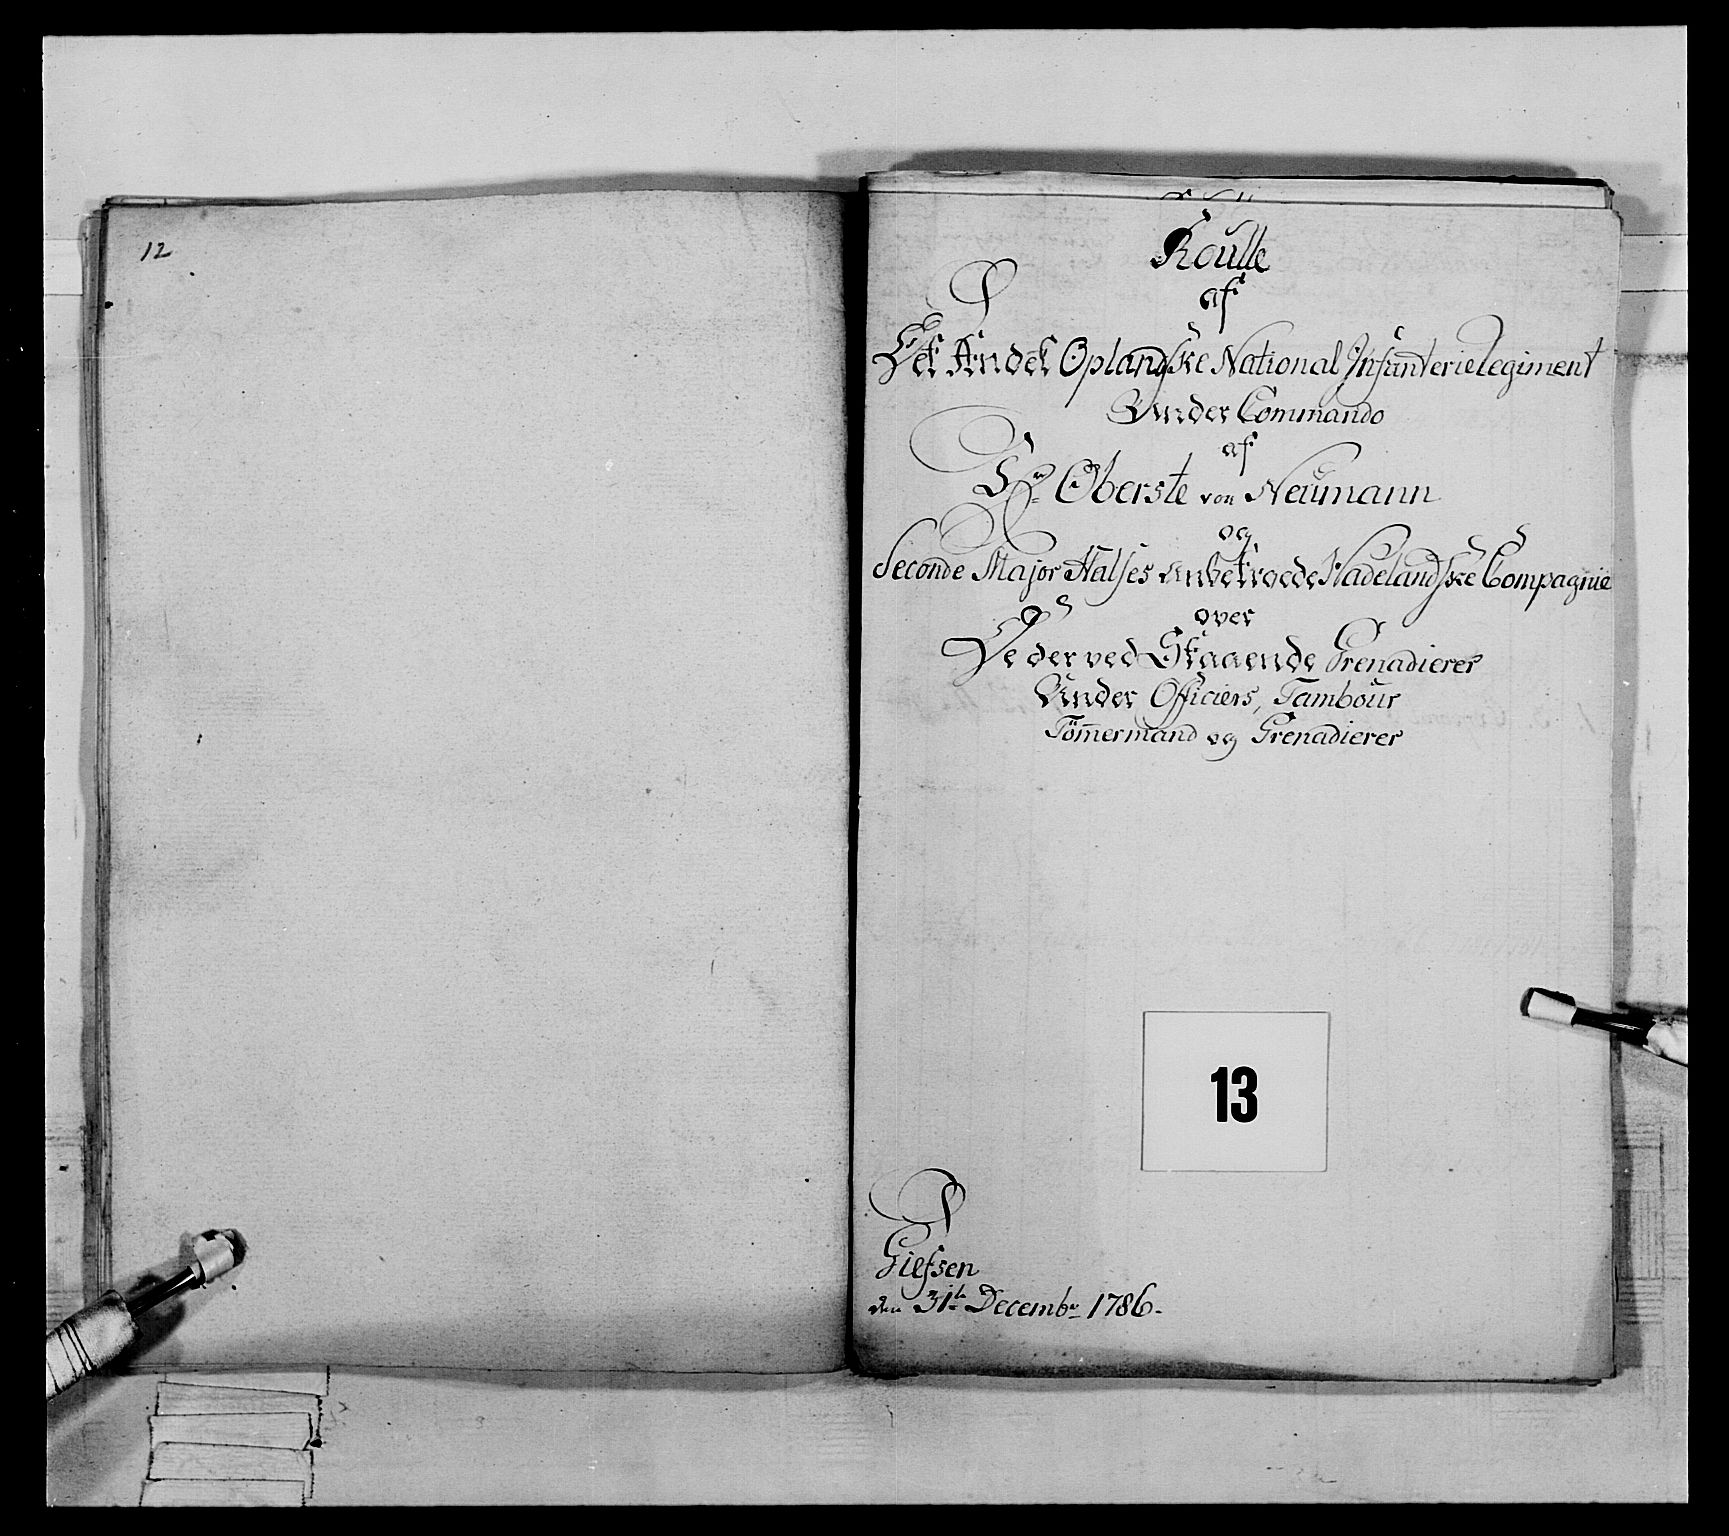 12
Roulle
af
Det Andet Oplandske National Infanterie Regiment
Under Commando
af
Hr Oberste von Neümann
og
Seconde Major Halses anbetroede Hadelandske Compagnie
over
De der ved Staaende Grenadierer
Under Officiers, Tambour
Tømermand og Grenadierer
13
Giefsen
den 31te Decembr 1786.